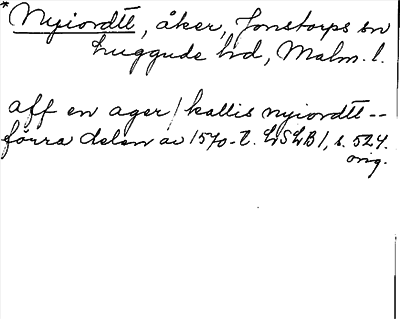 * Nyiordtt, åker, Jonstorps sn
Luggude hd, Malm. l.
aff en ager / kallis nyiordtt --
förra delen av 1570-t. LSLB 1, s. 524.
orig.